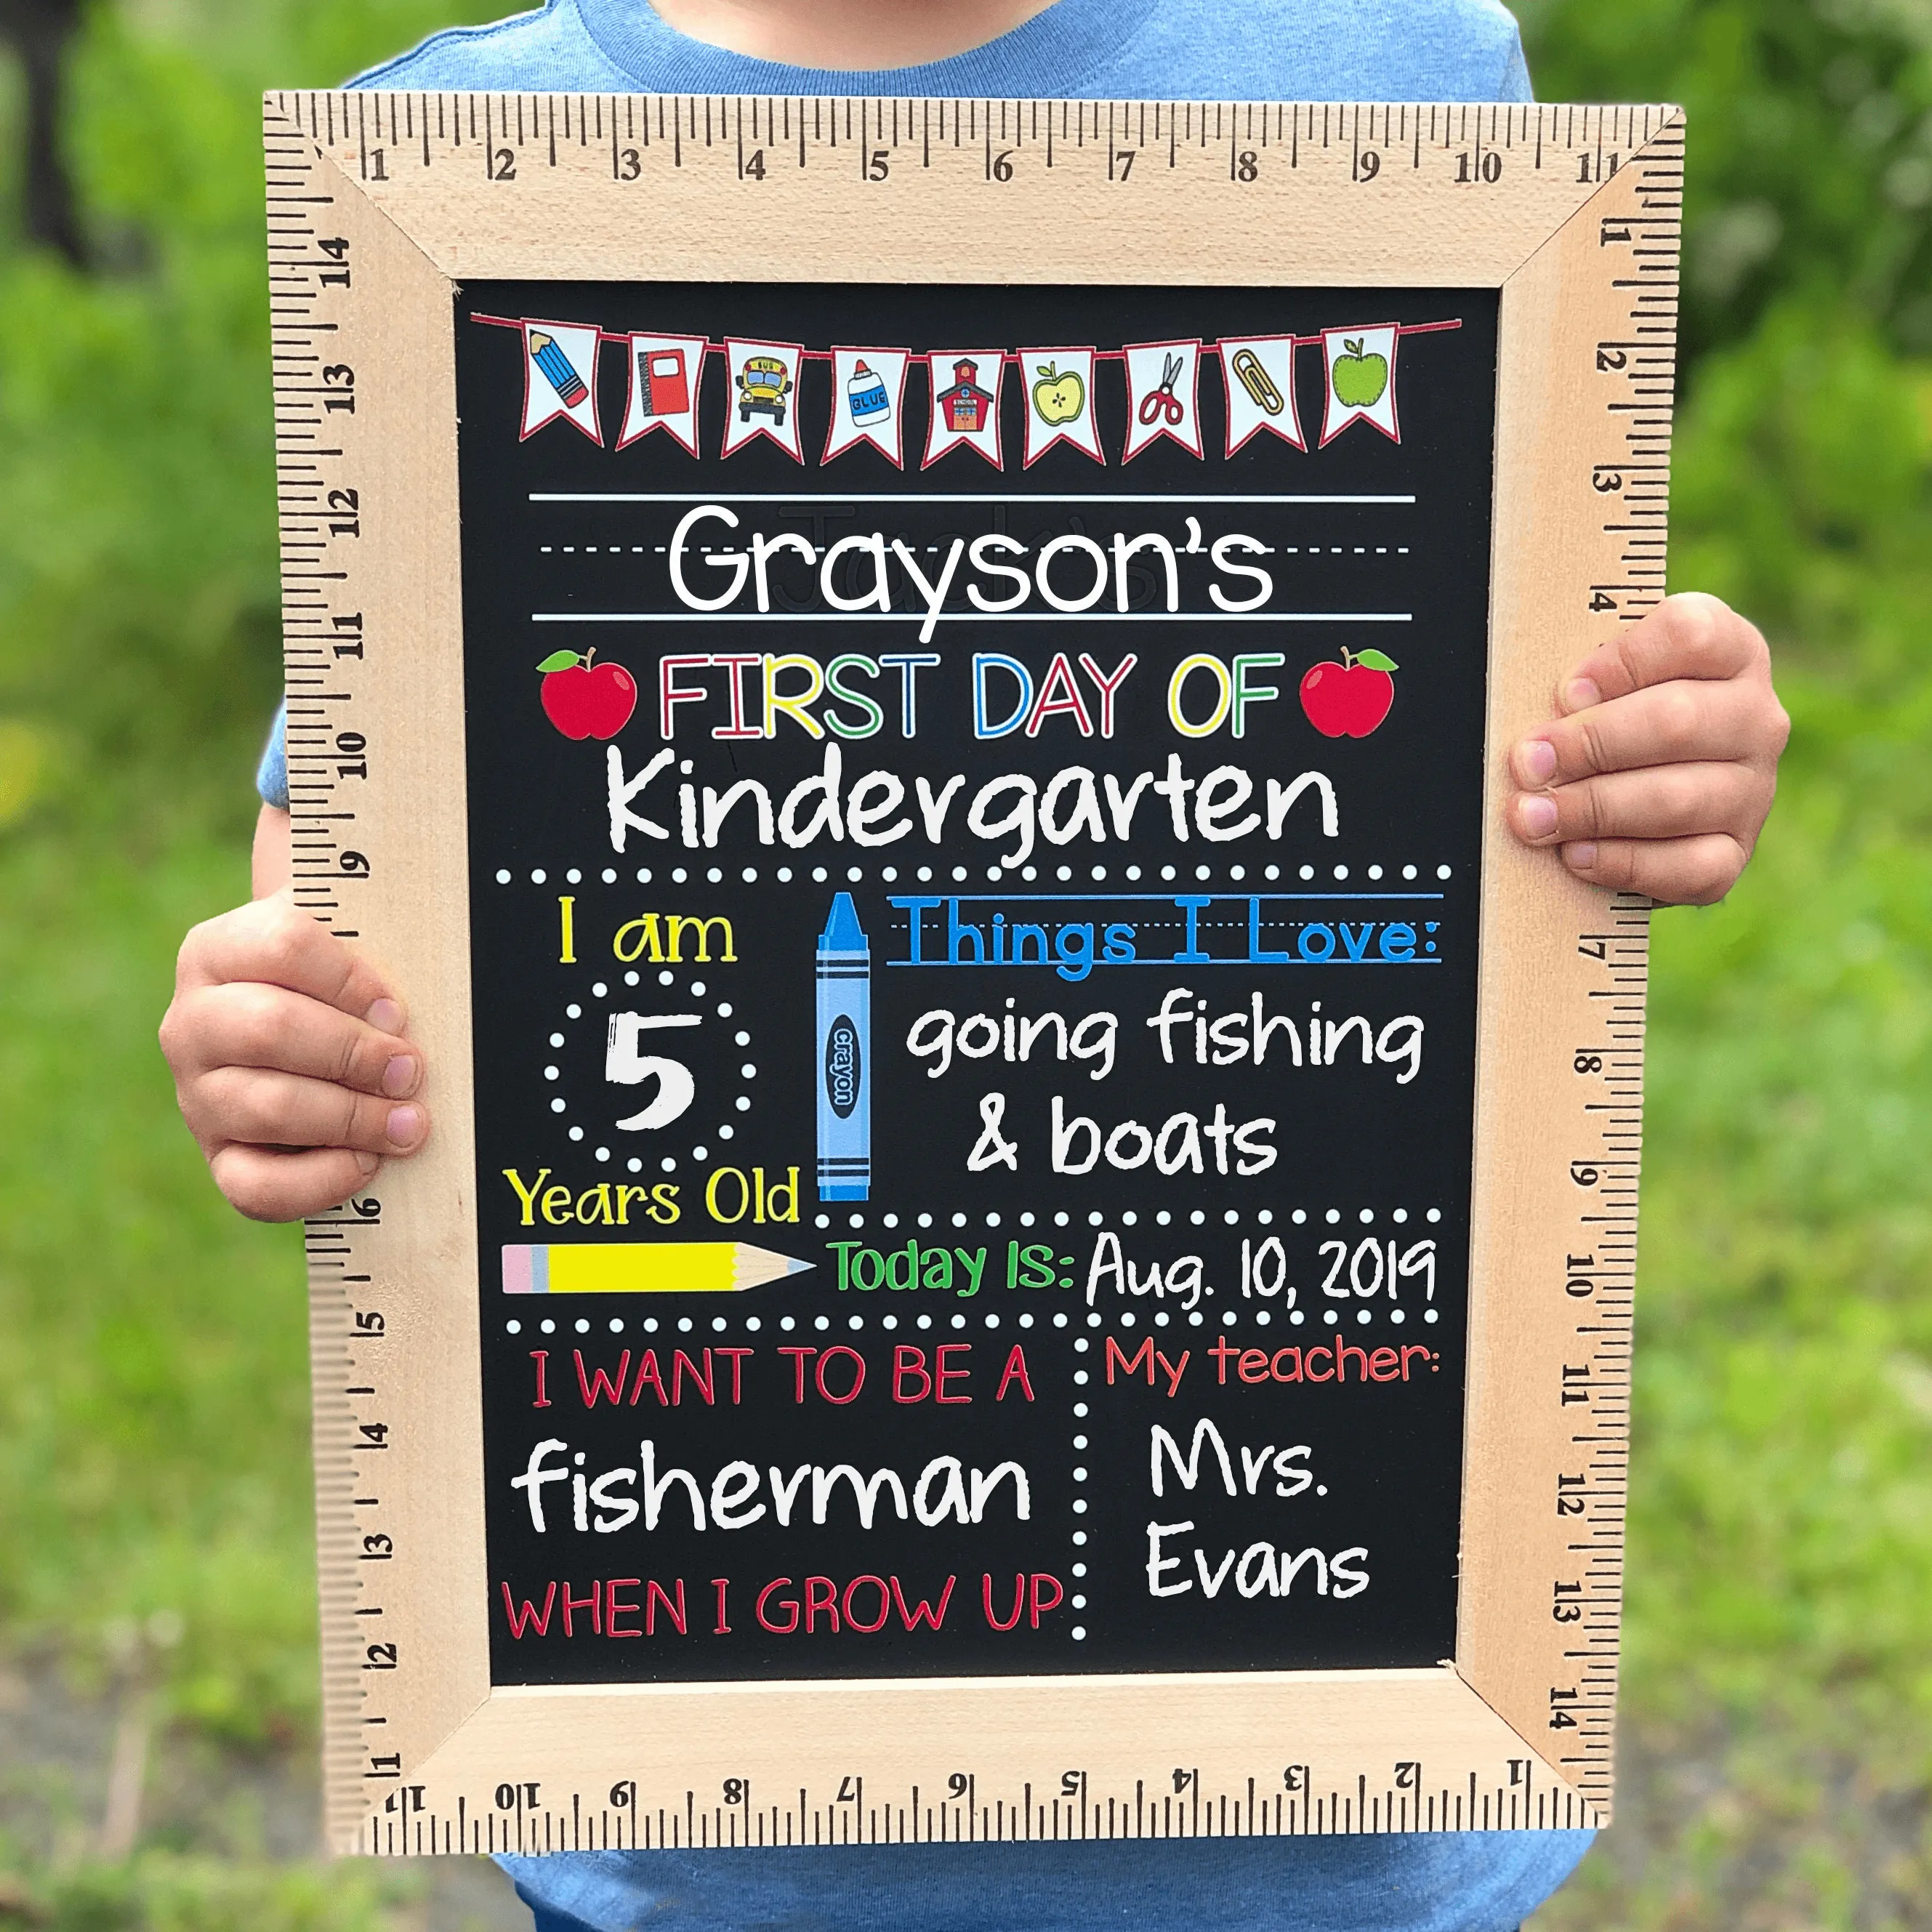 1 2 3 4 5 6 7 8 9 10 11
BUS
GLUE
SCHOOL
Grayson's
FIRST DAY OF
Kindergarten
I am
5
Years Old
crayon
Things I Love:
going fishing
& boats
Today Is: Aug. 10, 2019
I WANT TO BE A
fisherman
WHEN I GROW UP
My teacher:
Mrs.
Evans
1 2 3 4 7 8 9 10 11 12 13 14
1 2 3 4 5 6 7 8 9 10 11
1 2 3 4 5 6 9 10 11 12 13 14